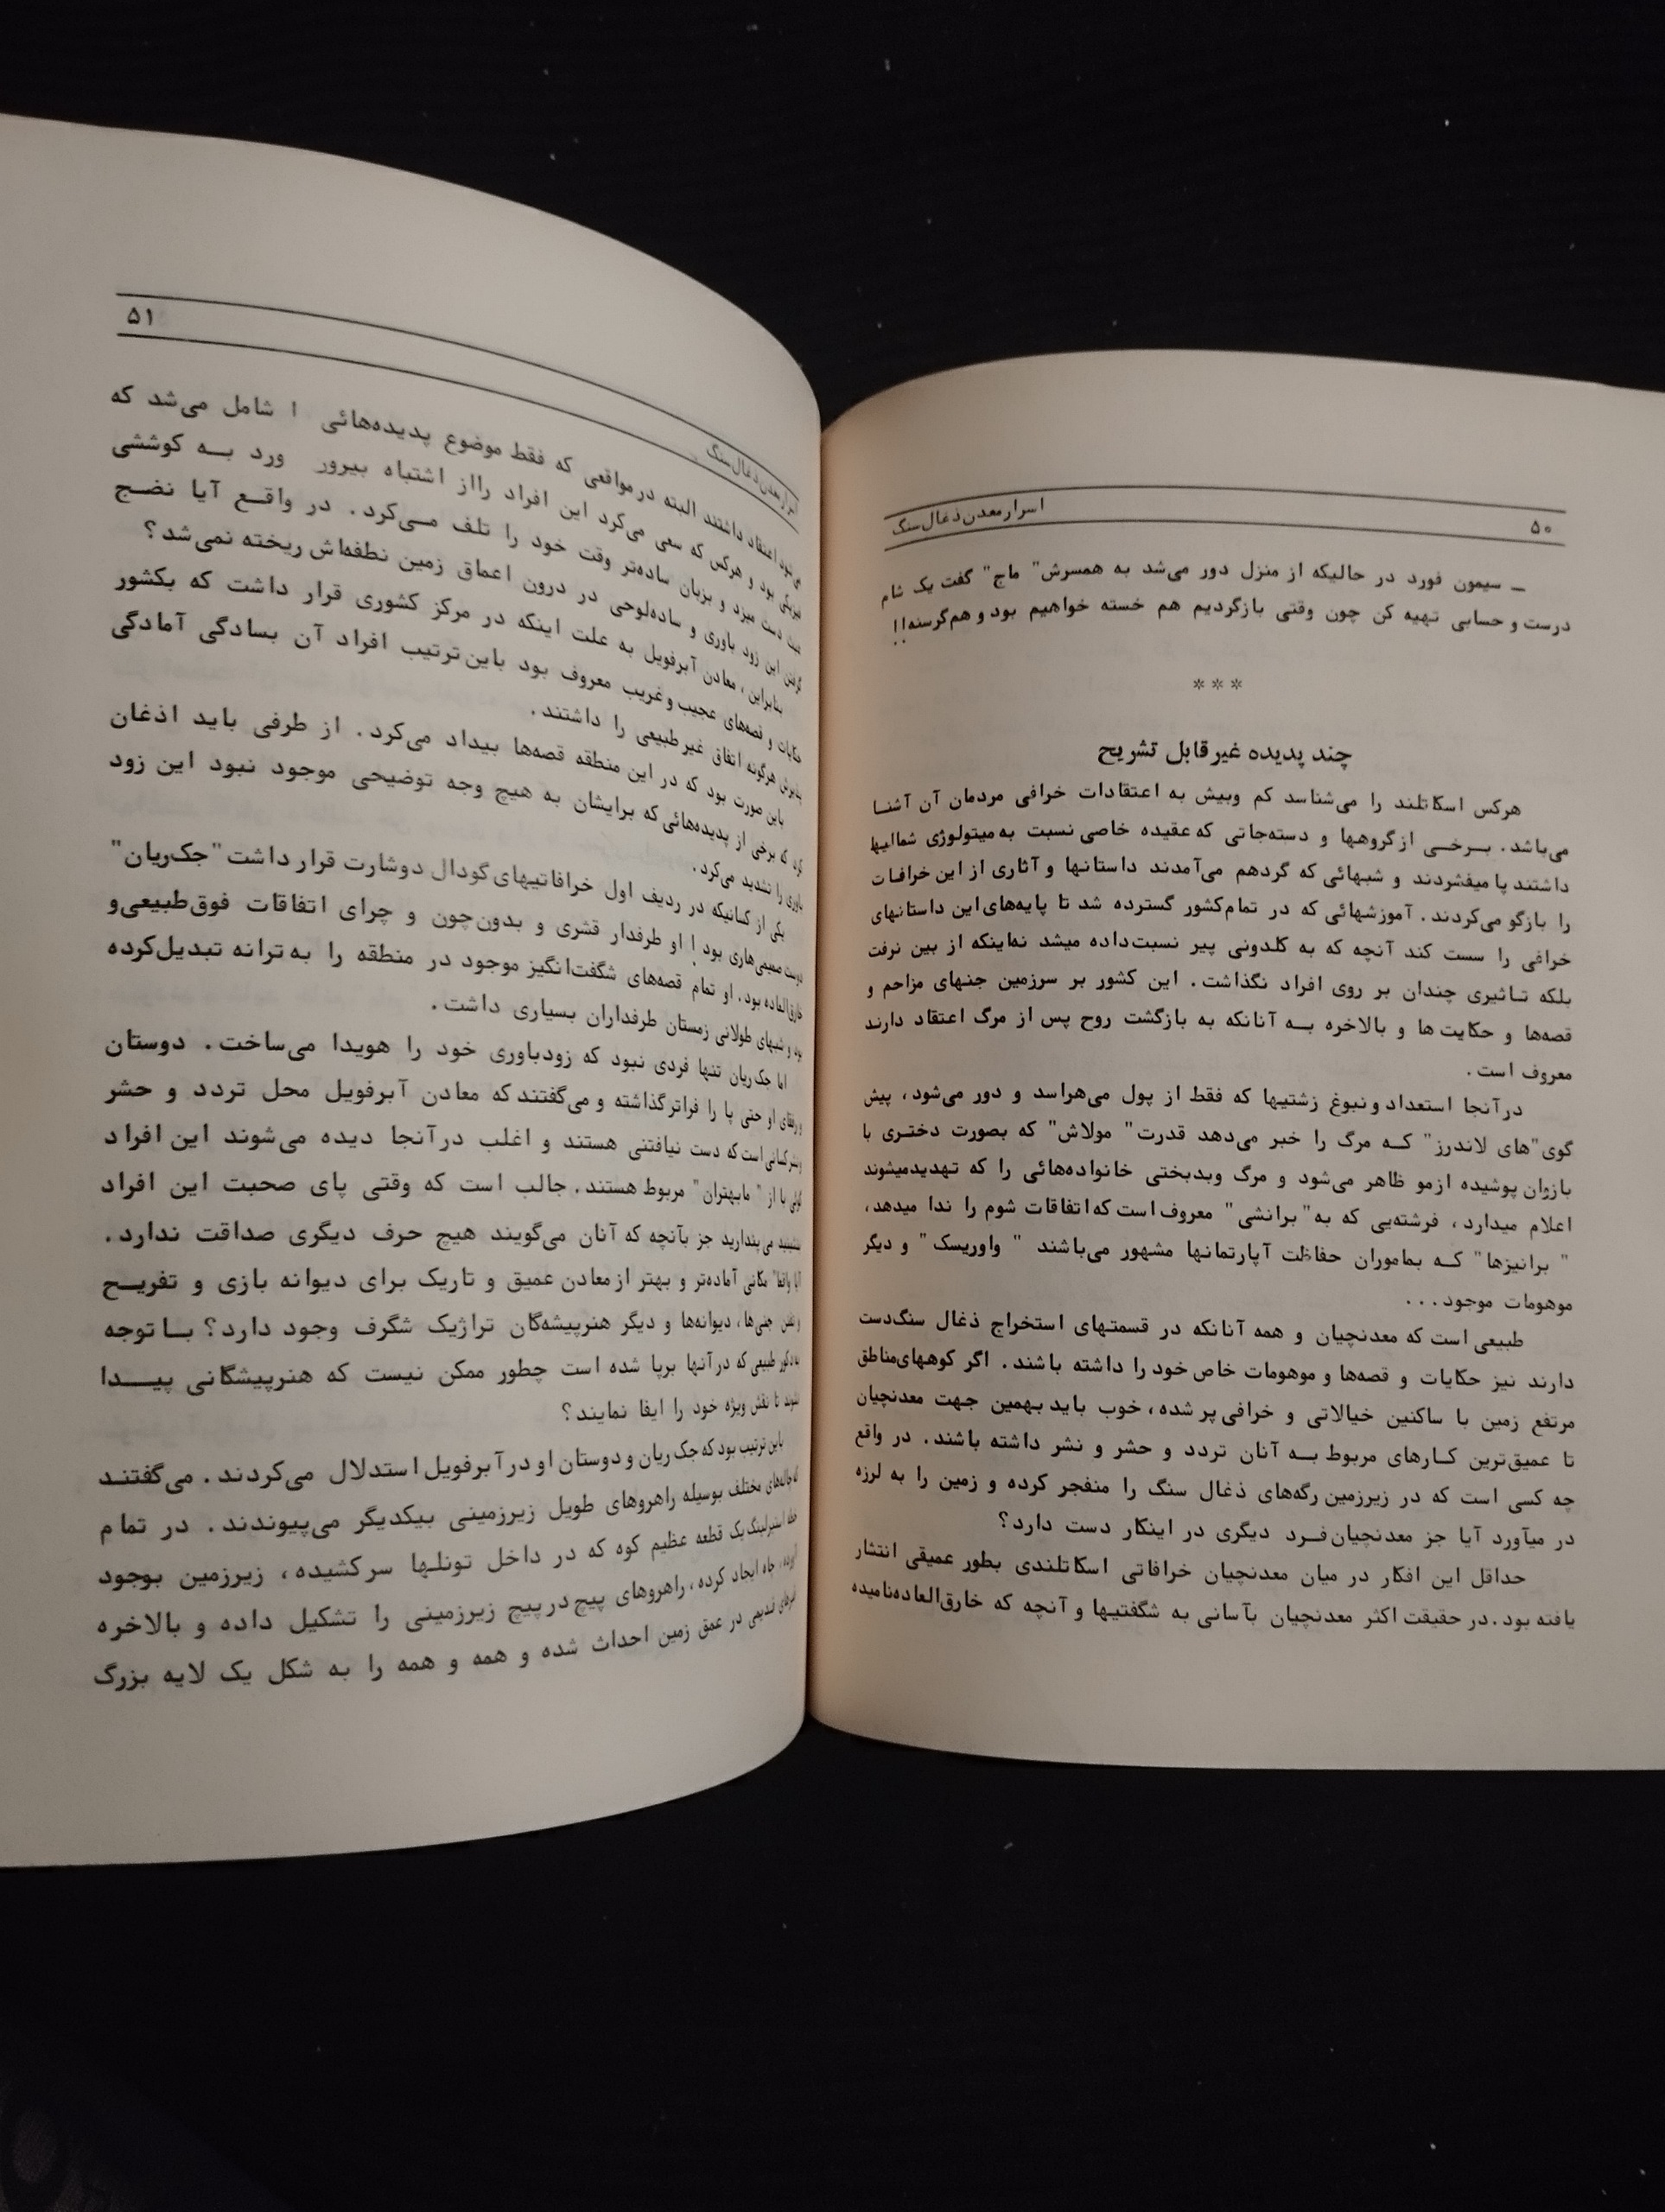 ۵۰
اسرار معدن ذغال سنگ
ــ سیمون فورد در حالیکه از منزل دور می‌شد به همسرش" ماج" گفت یک شام
درست و حسابی تهیه کن چون وقتی بازگردیم هم خسته خواهیم بود و هم‌گرسنه!!
***
چند پدیده غیرقابل تشریح
هرکس اسکاتلند را می‌شناسد کم وبیش به اعتقادات خرافی مردمان آن آشنا
می‌باشد. برخی ازگروهها و دسته‌جاتی که عقیده خاصی نسبت به میتولوژی شمالیها
داشتند پا میفشردند و شبهائی که گردهم می‌آمدند داستانها و آثاری از این خرافات
را بازگو می‌کردند. آموزشهائی که در تمام‌کشور گسترده شد تا پایه‌های این داستانهای
خرافی را سست کند آنچه که به کلدونی پیر نسبت‌داده میشد نه‌اینکه از بین نرفت
بلکه تاثیری چندان بر روی افراد نگذاشت. این کشور بر سرزمین جنهای مزاحم و
قصه‌ها و حکایت ها و بالاخره به آنانکه به بازگشت روح پس از مرگ اعتقاد دارند
معروف است.
درآنجا استعداد و نبوغ زشتیها که فقط از پول می‌هراسد و دور می‌شود، پیش
گوی"های لاندرز" که مرگ را خبر می‌دهد قدرت" مولاش" که بصورت دختری با
بازوان پوشیده ازمو ظاهر می‌شود و مرگ وبدبختی خانواده‌هائی را که تهدیدمیشوند
اعلام میدارد، فرشته‌یی که به" برانشی" معروف است که اتفاقات شوم را ندا میدهد،
" برانیزها" که بماموران حفاظت آپارتمانها مشهور می‌باشند " واوریسک" و دیگر
موهومات موجود...
طبیعی است که معدنچیان و همه آنانکه در قسمتهای استخراج ذغال سنگ‌دست
دارند نیز حکایات و قصه‌ها و موهومات خاص خود را داشته باشند. اگر کوههای‌مناطق
مرتفع زمین با ساکنین خیالاتی و خرافی پر شده، خوب باید بهمین جهت معدنچیان
تا عمیق‌ترین کارهای مربوط به آنان تردد و حشر و نشر داشته باشند. در واقع
چه کسی است که در زیرزمین رگه‌های ذغال سنگ را منفجر کرده و زمین را به لرزه
در میآورد آیا جز معدنچیان‌فرد دیگری در اینکار دست دارد؟
حداقل این افکار در میان معدنچیان خرافاتی اسکاتلندی بطور عمیقی انتشار
یافته بود.در حقیقت اکثر معدنچیان بآسانی به شگفتیها و آنچه که خارق‌العاده‌نامیده
۵۱
اسرار معدن ذغال سنگ
می‌شود اعتقاد داشتند البته در مواقعی که فقط موضوع پدیده‌هائی شامل می‌شد که
فیزیکی بود و هرکس که سعی می‌کرد این افراد رااز اشتباه به کوششی
دست میزد و بزبان ساده‌تر وقت خود را تلف می‌کرد. در واقع آیا نضج
گرفتن این زود باوری و ساده‌لوحی در درون اعماق زمین نطفه‌اش ریخته نمی‌شد؟
بنابراین، معادن آبرفویل به علت اینکه در مرکز کشوری قرار داشت که بکشور
حکایات و قصه‌های عجیب وغریب معروف بود باین‌ترتیب افراد آن بسادگی آمادگی
پذیرش هرگونه اتفاق غیرطبیعی را داشتند.
باین صورت بود که در این منطقه قصه‌ها بیداد می‌کرد. از طرفی باید اذغان
کرد که برخی از پدیده‌هائی‌که برایشان به هیچ وجه توضیحی موجود نبود این زود
باوری را تشدید می‌کرد.
یکی از کسانیکه در ردیف اول خرافاتیهای‌گودال دوشارت قرار داشت "جک‌ریان"
دوست صمیمی‌هاری بود! او طرفدار قشری و بدون‌چون و چرای اتفاقات فوق‌طبیعی‌و
خارق‌العاده بود. او تمام قصه‌های شگفت‌انگیز موجود در منطقه را به ترانه تبدیل‌کرده
بود و شبهای طولانی زمستان طرفداران بسیاری داشت.
اما جک‌ریان تنها فردی نبود که زودباوری خود را هویدا می‌ساخت. دوستان
و رفقای او حتی پا را فراترگذاشته و می‌گفتندکه معادن آبرفویل محل تردد و حشر
ونشرکسانی است‌که دست نیافتنی هستند و اغلب درآنجا دیده می‌شوند این افراد
گوئی با از" مابهتران" مربوط هستند. جالب است که وقتی پای صحبت این افراد
بنشینید می‌پندارید جز بآنچه که آنان می‌گویند هیچ حرف دیگری صداقت ندارد.
آیا واقعا" مکانی آماده‌تر و بهتر ازمعادن عمیق و تاریک برای دیوانه بازی و تفریح
جنی‌ها، دیوانه‌ها و دیگر هنرپیشه‌گان تراژیک شگرف وجود دارد؟ با توجه
به‌دکور طبیعی که درآنها برپا شده است چطور ممکن نیست که هنرپیشگانی پیدا
شوند تا نقش ویژه خود را ایفا نمایند؟
باین ترتیب بود که جک ریان و دوستان او درآبرفویل استدلال می‌کردند. می‌گفتند
که چاله‌های مختلف بوسیله راهروهای طویل زیرزمینی بیکدیگر می‌پیوندند. در تمام
استیرلینگ یک قطعه عظیم کوه که در داخل تونلها سرکشیده، زیرزمین بوجود
چاه ایجاد کرده، راهروهای پیچ درپیچ زیرزمینی را تشکیل داده و بالاخره
در عمق زمین احداث شده و همه و همه را به شکل یک لایه بزرگ